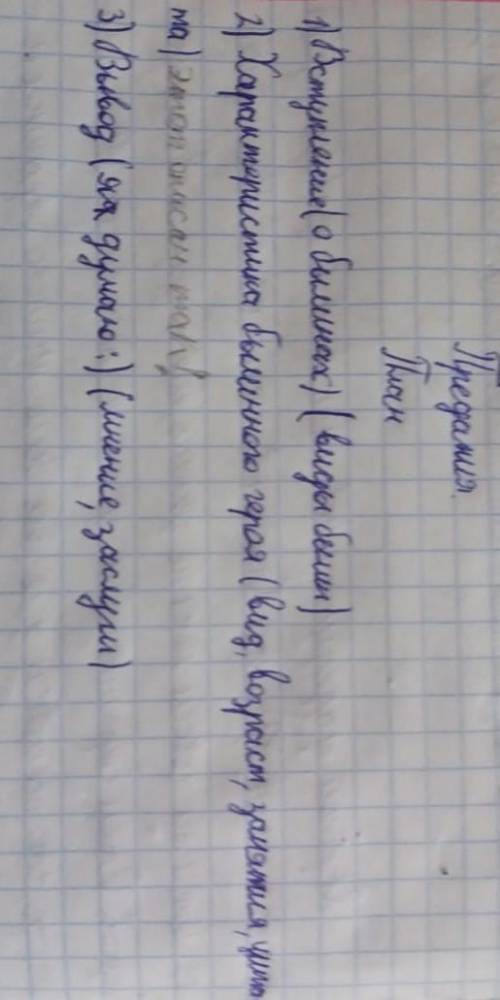 Предания.
План
1) Вступление (о былинах) (виды былин)
2) Характеристика былинного героя (вид, возраст, занятия,
та)
3) Вывод (я думаю:) (мнение, заслуги)